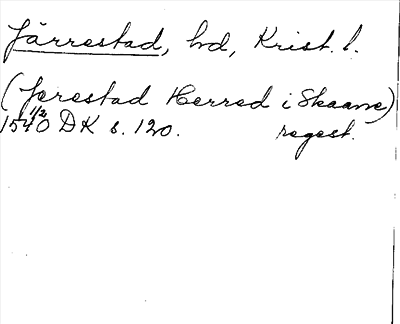 Järrestad, hd, Krist. l.
(Jerestad Herred i Skaane)
15 1/2 40 DK s. 120. regest.